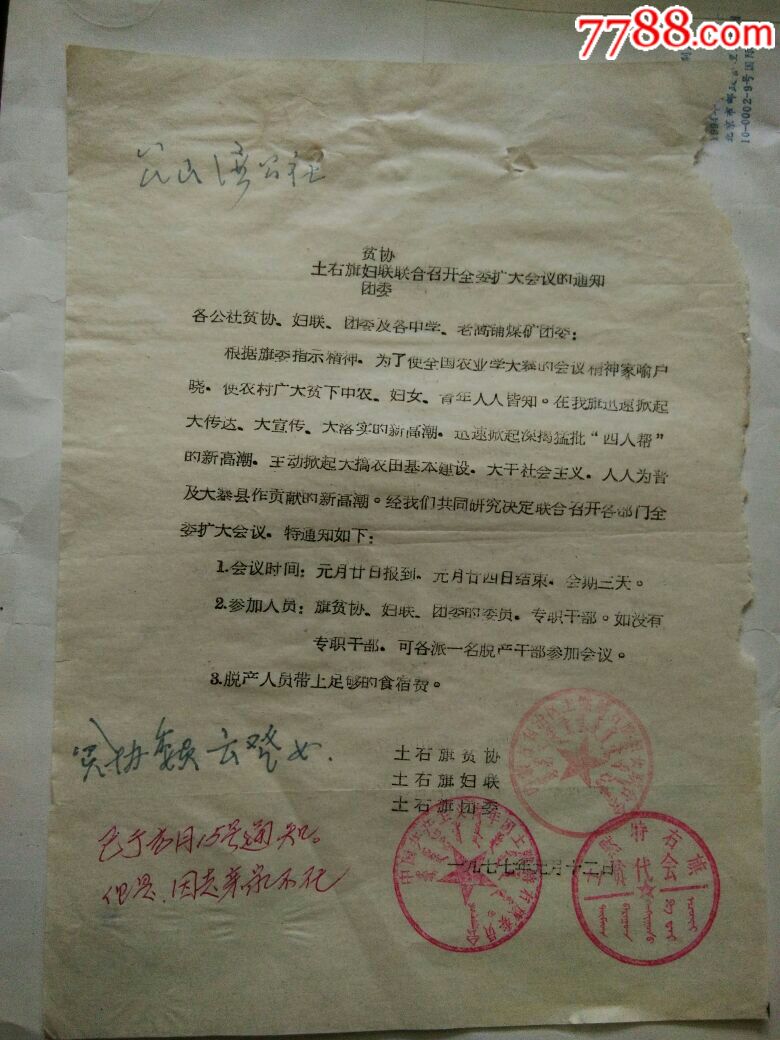 7788.com
1994
10-0002-9号国际
公社
贫协
土右旗妇联联合召开全委扩大会议的通知
团委
各公社贫协、妇联、团委及各中学、老窝铺煤矿团委:
根据旗委指示精神.为了使全国农业学大寨的会议精神家喻户
晓.使农村广大贫下中农、妇女、青年人人皆知。在我旗迅速掀起
大传达、大宣传、大落实的新高潮.迅速掀起深揭猛批“四人帮”
的新高潮.主动掀起大搞农田基本建设.大干社会主义.人人为普
及大寨县作贡献的新高潮。经我们共同研究决定联合召开各部门全
委扩大会议.特通知如下:
1.会议时间:元月廿日报到.元月廿四日结束.会期三天。
2.参加人员:旗贫协、妇联、团委的委员.专职干部。如没有
专职干部.可各派一名脱产干部参加会议。
3.脱产人员带上足够的食宿费。
贫协委员云登女.
土右旗贫协
土右旗妇联
土右旗团委
一九七七年元月十二日
已于本月15号通知。
但是,因